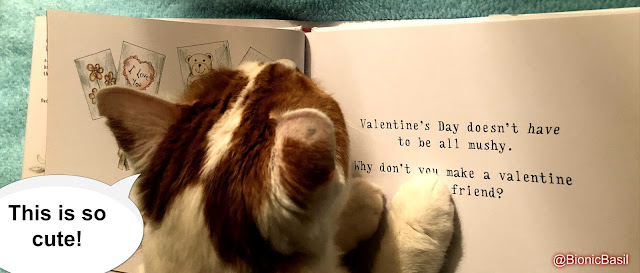 I Love
You
Valentine's Day doesn't have
to be all mushy.
Why don't you make a valentine
friend?
This is so
cute!
@BionicBasil